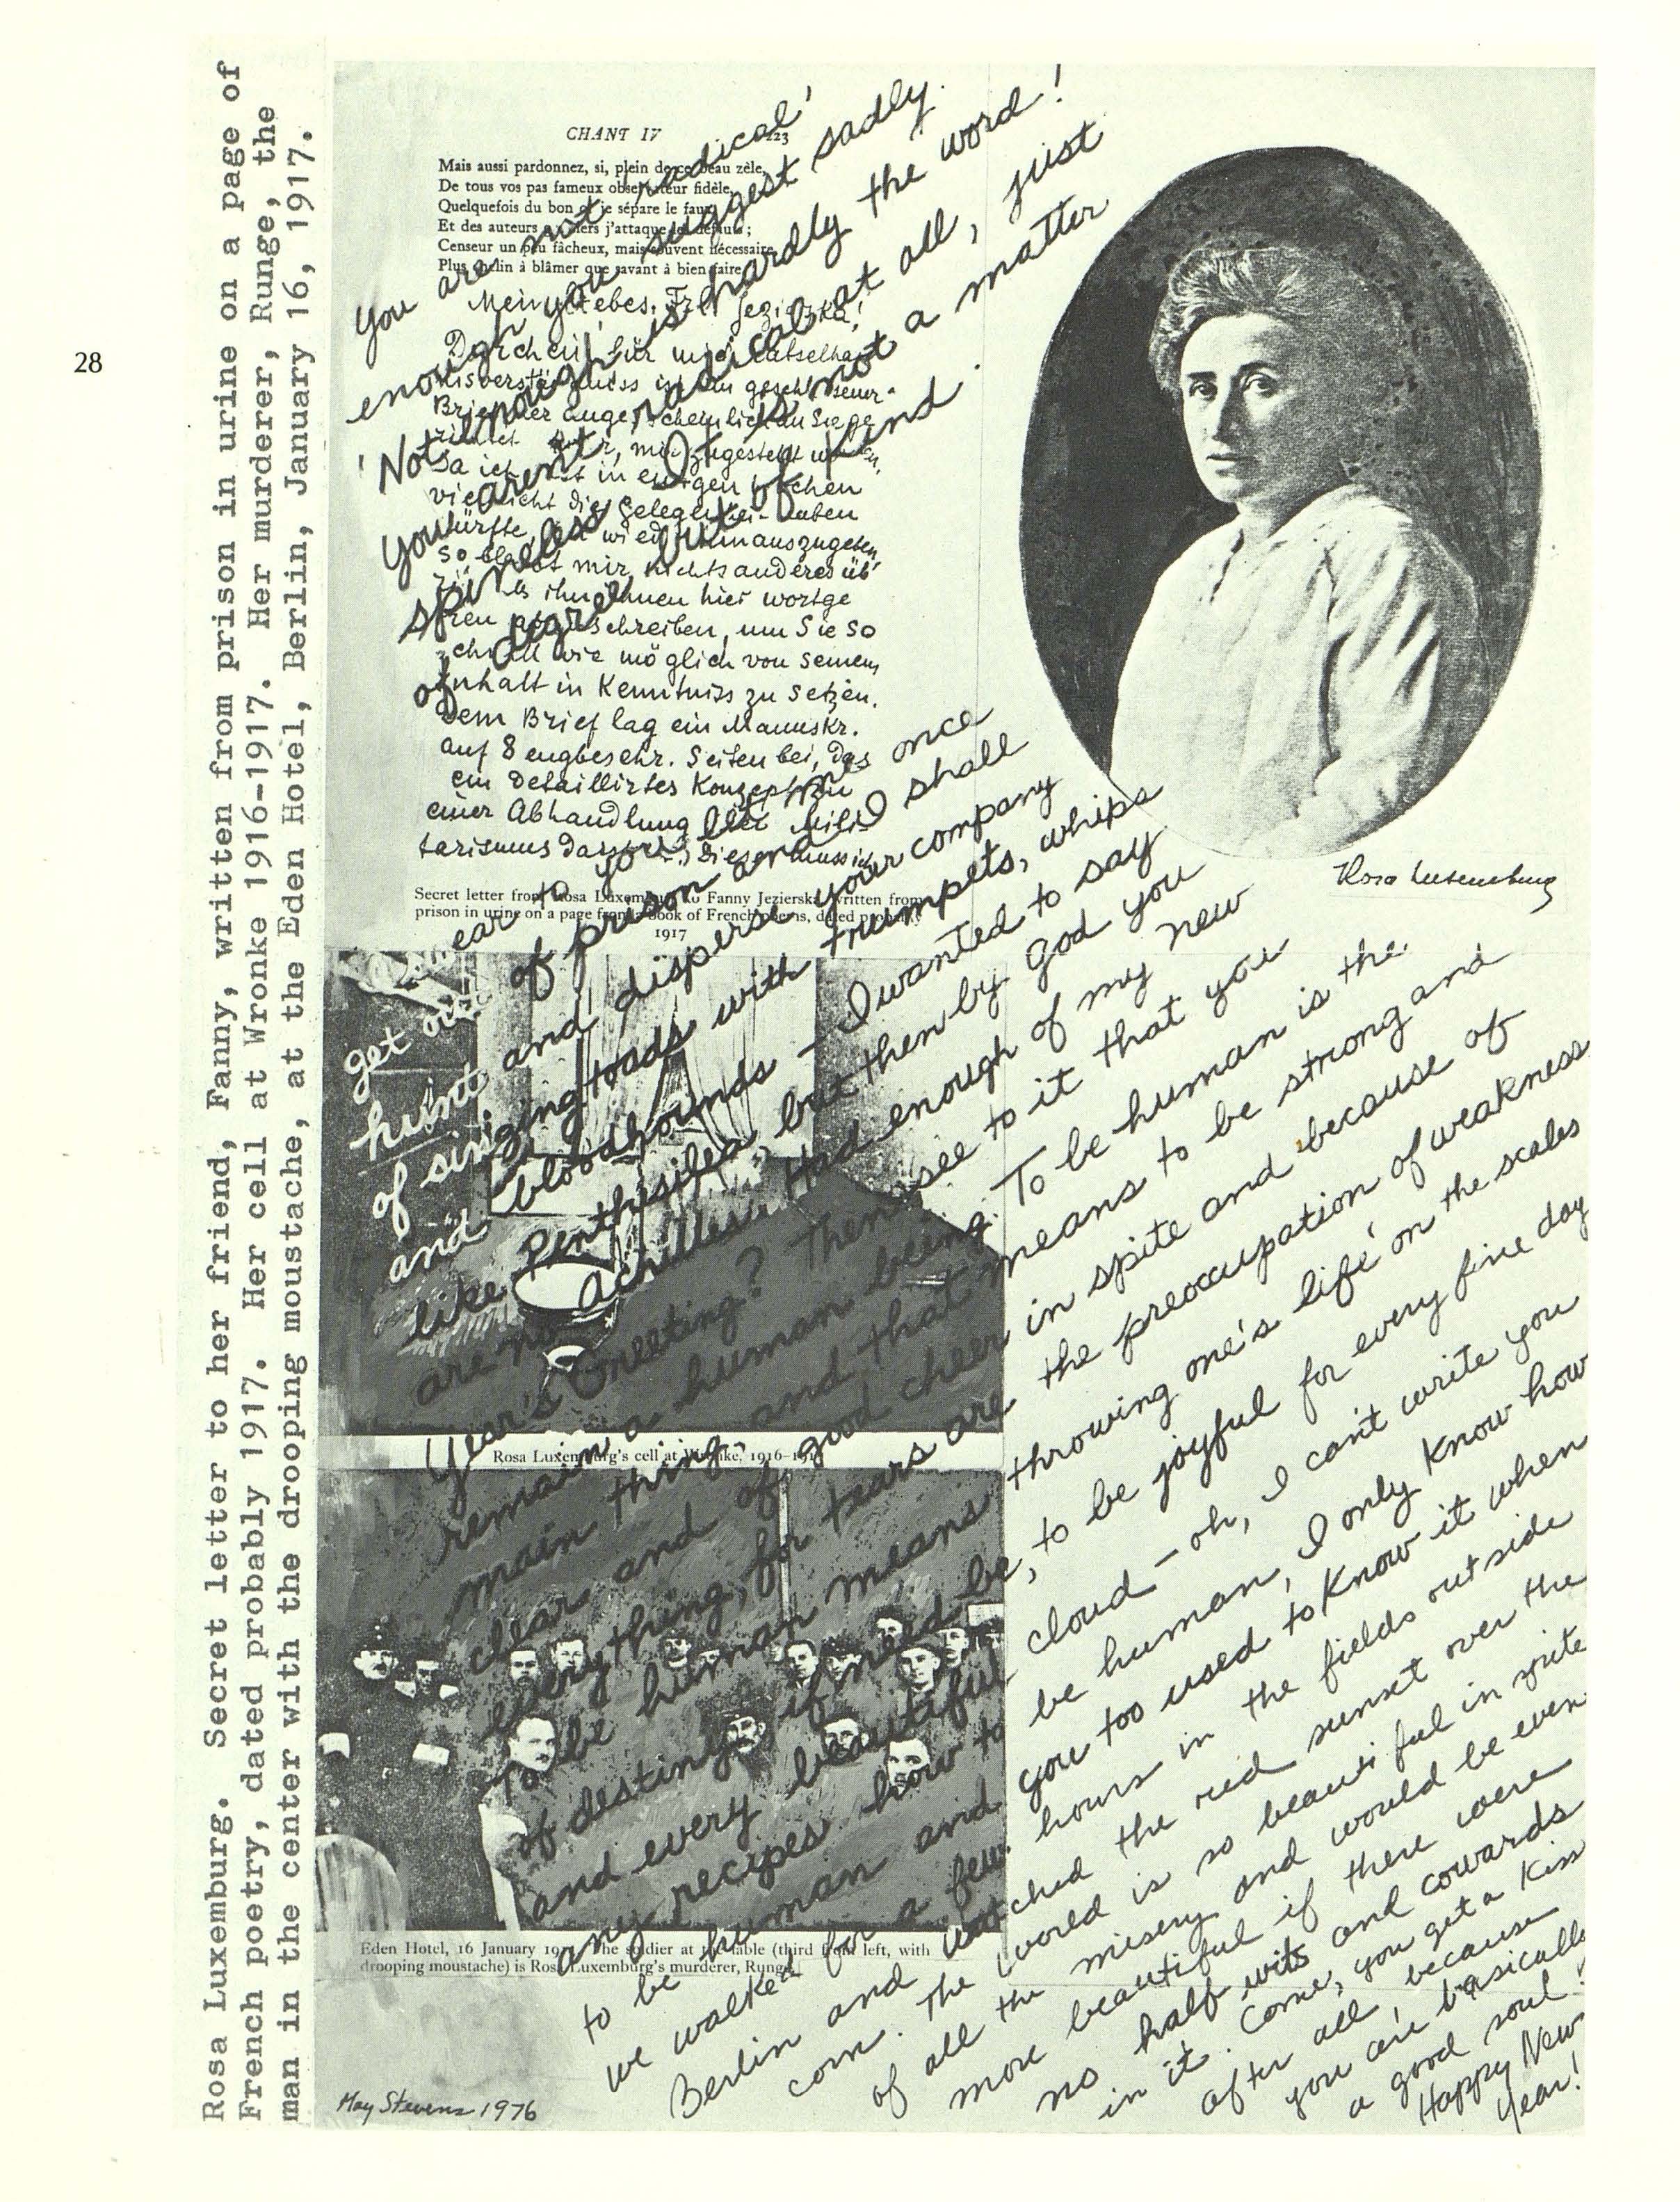 28
Rosa Luxemburg. Secret letter to her friend, Fanny, written from prison in urine on a page of
French poetry, dated probably 1917. Her cell at Wronke 1916-1917. Her murderer, Runge, the
man in the center with the drooping moustache, at the Eden Hotel, Berlin, January 16, 1917.
CHANT IV 223
Mais aussi pardonnez, si, plein de ce beau zèle,
De tous vos pas fameux observateur fidèle,
Quelquefois du bon or je sépare le faux,
Et des auteurs grossiers j'attaque les défauts;
Censeur un peu fâcheux, mais souvent nécessaire,
Plus enclin à blâmer que savant à bien faire.
Mein liebes Frl. Jezierska!
Durch ein für mich rätselhaft
Misverständniss ist ein geschlossener
Brief, der augenscheinlich an Sie ge
mir zugestellt
Da ich erst in einigen Wochen
vielleicht die Gelegenheit haben
dürfte, wieder hinauszugeben
so bleibt mir nichts anderes üb
ihn Ihnen hier wortge
treu abzuschreiben, um Sie so
schnell wie möglich von seinem
Inhalt in Kenntniss zu setzen.
Dem Brief lag ein Manuskr.
auf 8 engbeschr. Seiten bei, das
ein detaillirtes Konzept zu
einer Abhandlung über Mili-
tarismus darstellt. Dieses muss ich
Secret letter from Rosa Luxemburg to Fanny Jezierska, written from
prison in urine on a page from a book of French poems, dated probably
1917
Rosa Luxemburg
Rosa Luxemburg's cell at Wronke, 1916-1917
Eden Hotel, 16 January 19 The soldier at the table (third from left, with
drooping moustache) is Rosa Luxemburg's murderer, Runge
You are 'not radical'
enough' you suggest sadly.
'Not enough' is hardly the word!
You aren't radical at all, just
spineless. It is not a matter
of degree but of kind.
ear to you let me once
get out of prison and I shall
hunt and disperse your company
of singing toads with trumpets, whips
and bloodhounds - I wanted to say
like Penthisilea, but then by God you
are no Achilles. Had enough of my new
Year's Greeting? Then see to it that you
remain a human being. To be human is the
main thing, and that means to be strong and
clear and of good cheer in spite and because of
everything, for tears are the preoccupation of weakness
To be human means throwing one's life 'on the scales
of destiny' if need be, to be joyful for every fine day
and every beautiful cloud - oh, I can't write you
any recipes how to be human, I only know how
to be human and you too used to know it when
we walked for a few hours in the fields outside
Berlin and watched the red sunset over the
corn. The world is so beautiful in spite
of all the misery and would be even
more beautiful if there were
no half wits and cowards
in it. Come, you get a kiss
after all, because
you are basically
a good soul!
Happy New
Year!
May Stevens 1976